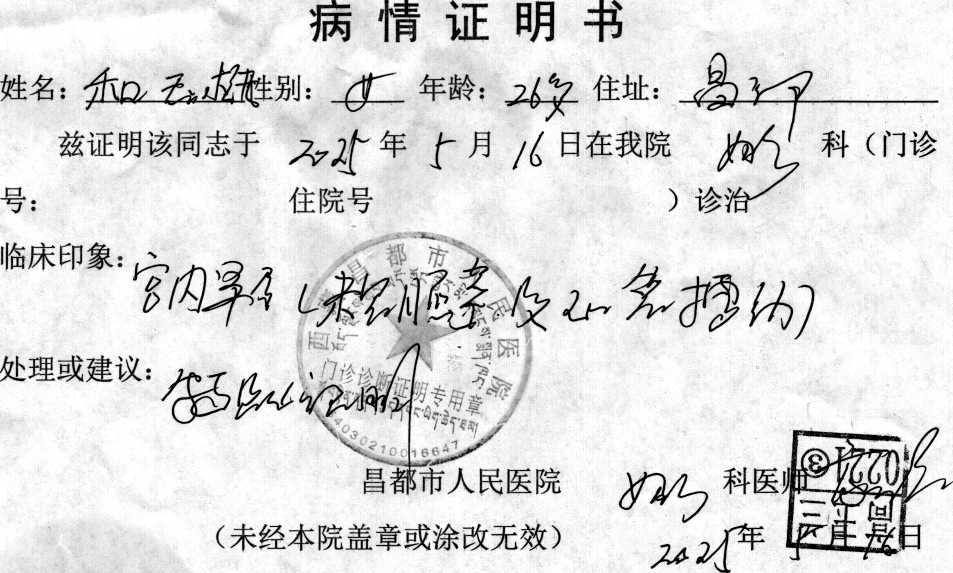 病情证明书
姓名: 性别: 女 年龄: 26岁 住址: 昌都
兹证明该同志于 2025 年 5 月 16 日在我院 妇 科（门诊
号: 住院号 ）诊治
临床印象: 宫内早孕（未见明显 心管搏动）
处理或建议: 特此证明
昌都市人民医院
门诊诊断证明专用章
昌都市人民医院 妇 科医师
0221
（未经本院盖章或涂改无效） 2025 年 5 月 16 日